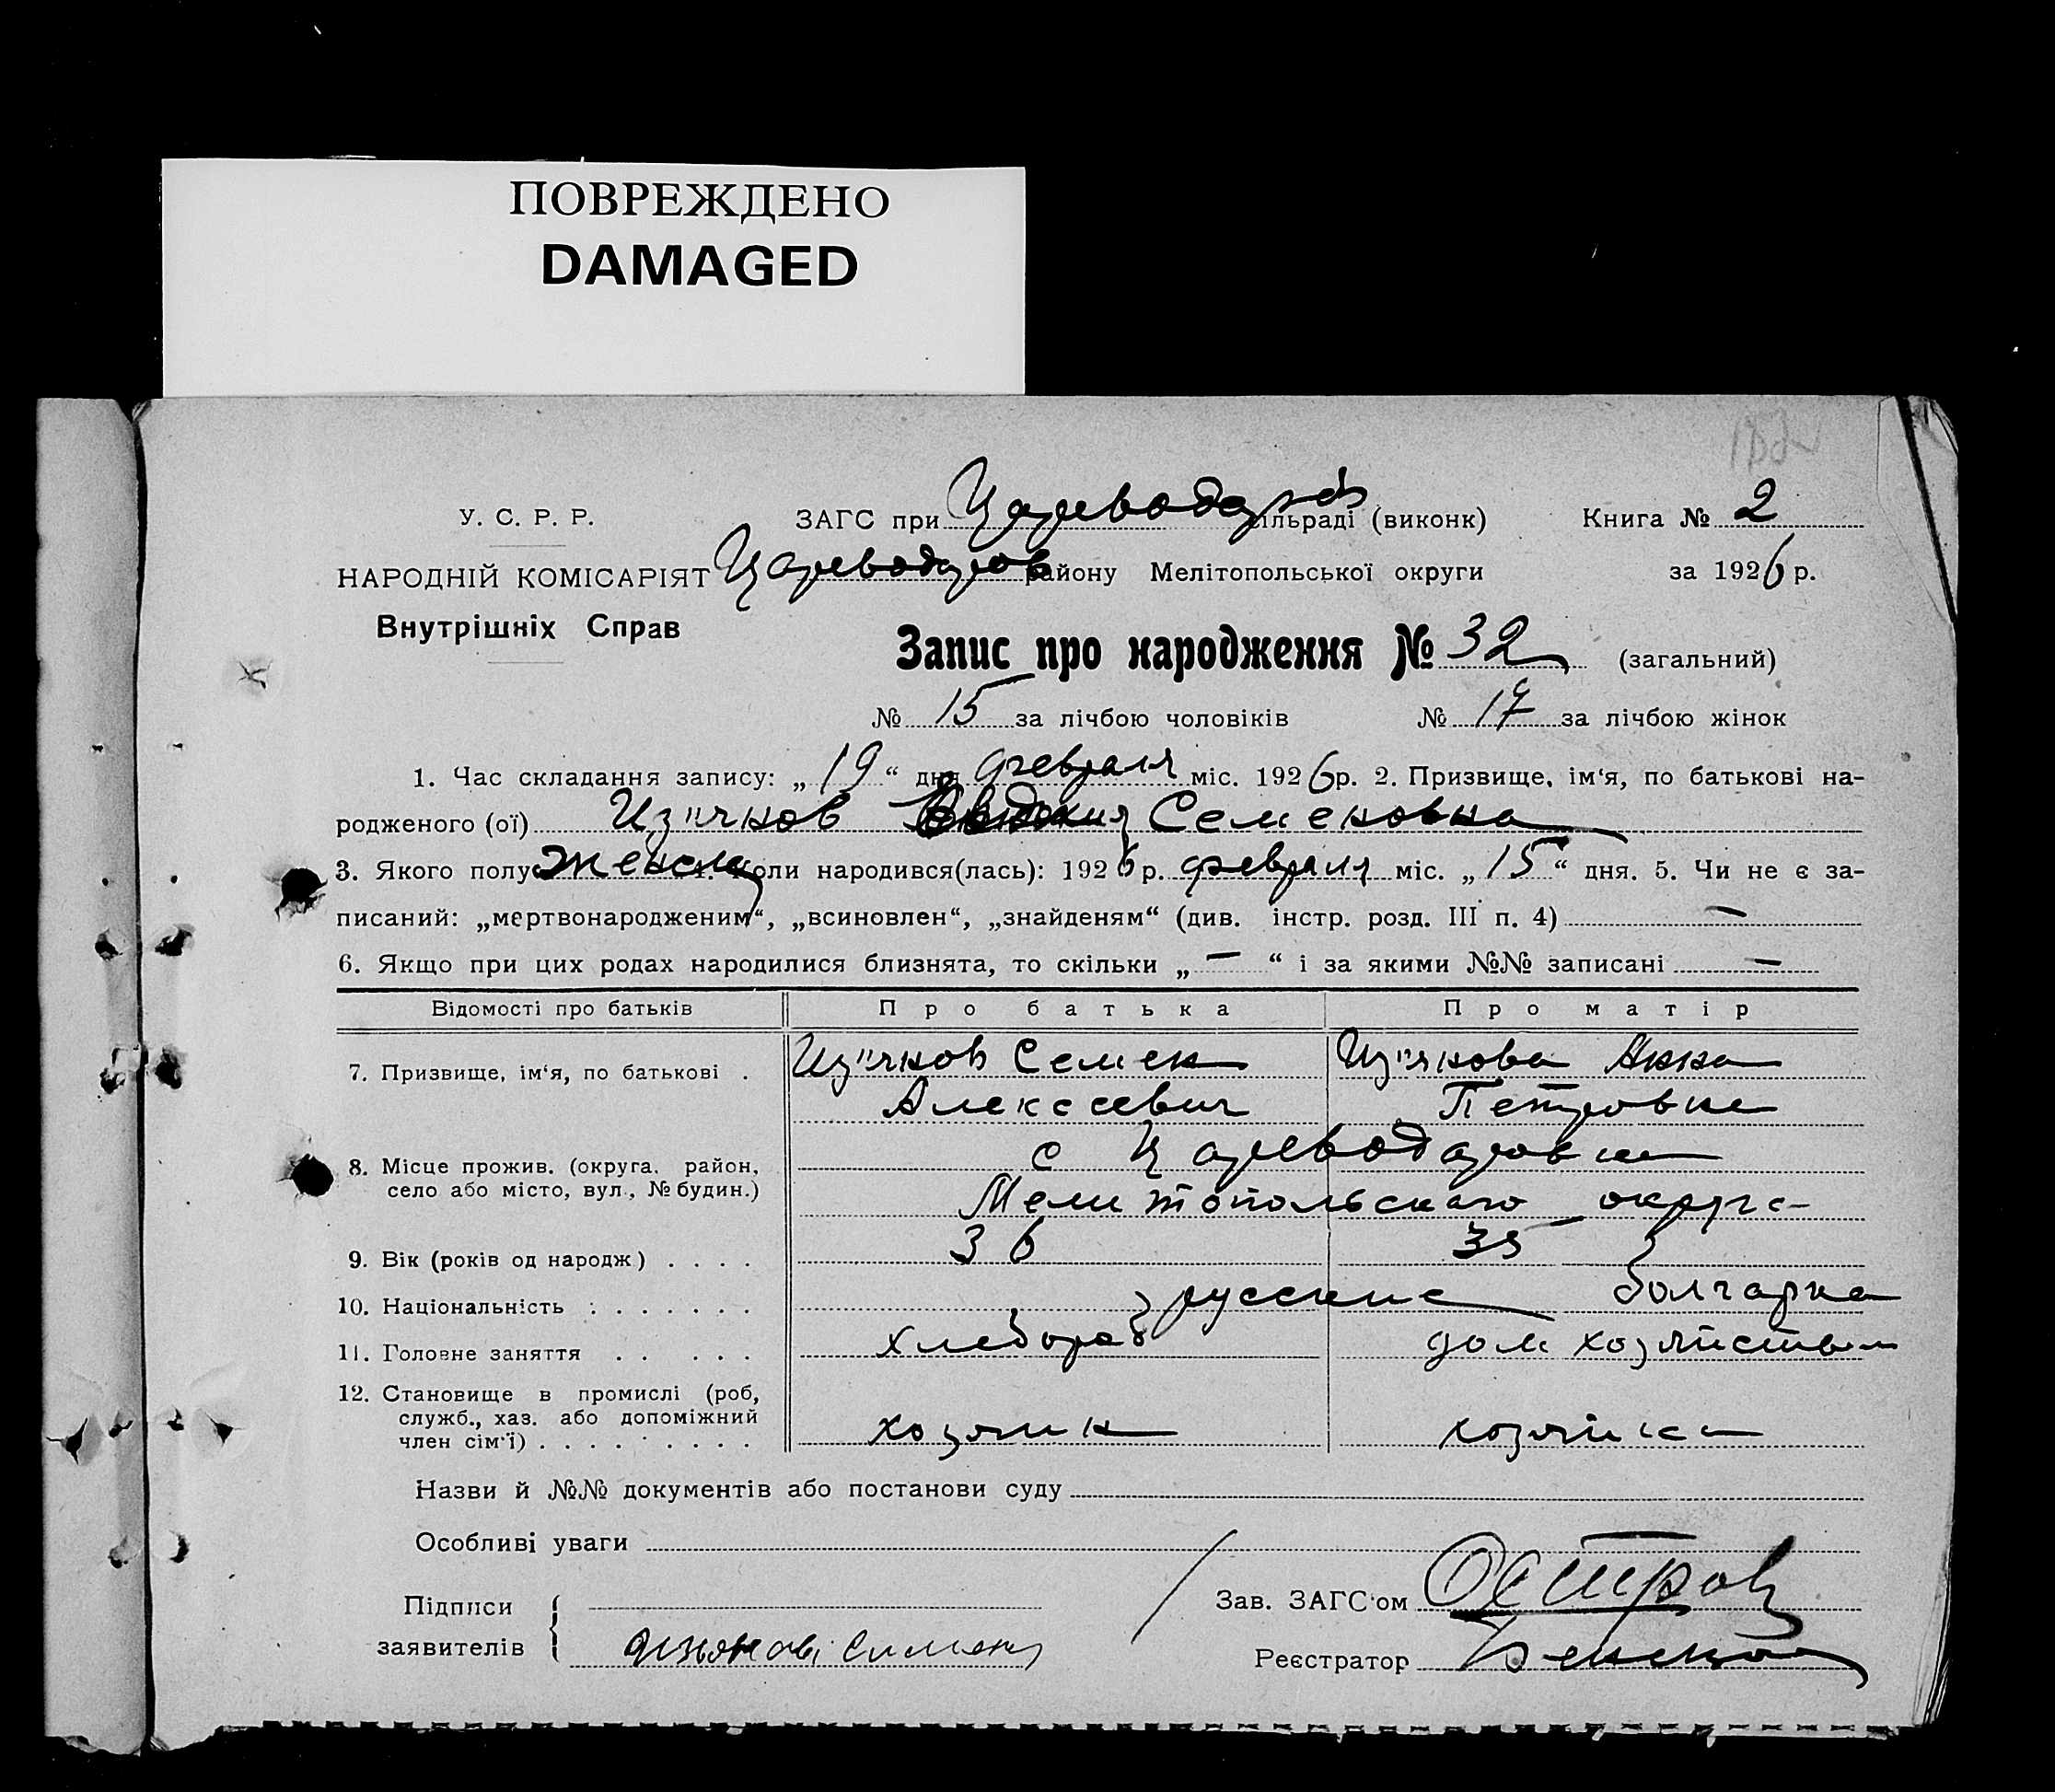 ПОВРЕЖДЕНО
DAMAGED
У. С. Р. Р.
НАРОДНІЙ КОМІСАРІЯТ
Внутрішніх Справ
ЗАГС при Царевода сільраді (виконк)
Книга № 2
Цареводаров району Мелітопольської округи
за 1926 р.
Запис про народження № 32 (загальний)
№ 15 за лічбою чоловіків № 17 за лічбою жінок
1. Час складання запису: „19“ дня февраля міс. 1926 р. 2. Призвище, ім‘я, по батькові на-
родженого (ої) Из"янов Евдокия Семеновна
3. Якого полу женск 4. Коли народився(лась): 1926 р. февраля міс. „15“ дня. 5. Чи не є за-
писаний: „мертвонародженим“, „всиновлен“, „знайденям“ (див. інстр. розд. III п. 4) —
6. Якщо при цих родах народилися близнята, то скільки „—“ і за якими №№ записані —
Відомості про батьків Про батька Про матір
7. Призвище, ім‘я, по батькові . Из"янов Семен Из"янова Анна
Алексеевич Петровна
8. Місце прожив. (округа, район, село або місто, вул., № будин.) с Цареводаровка
Мелитопольского округа
9. Вік (років од народж) . . . . 36 35
10. Національність . . . . . . . русские болгарка
11. Головне заняття . . . . . хлебороб дом хозяйством
12. Становище в промислі (роб,
служб., хаз. або допоміжний
член сім‘ї) . . . . . . . . . хозяин хозяйка
Назви й №№ документів або постанови суду
Особливі уваги
Підписи
заявителів
Зав. ЗАГС‘ом Остров
Реєстратор